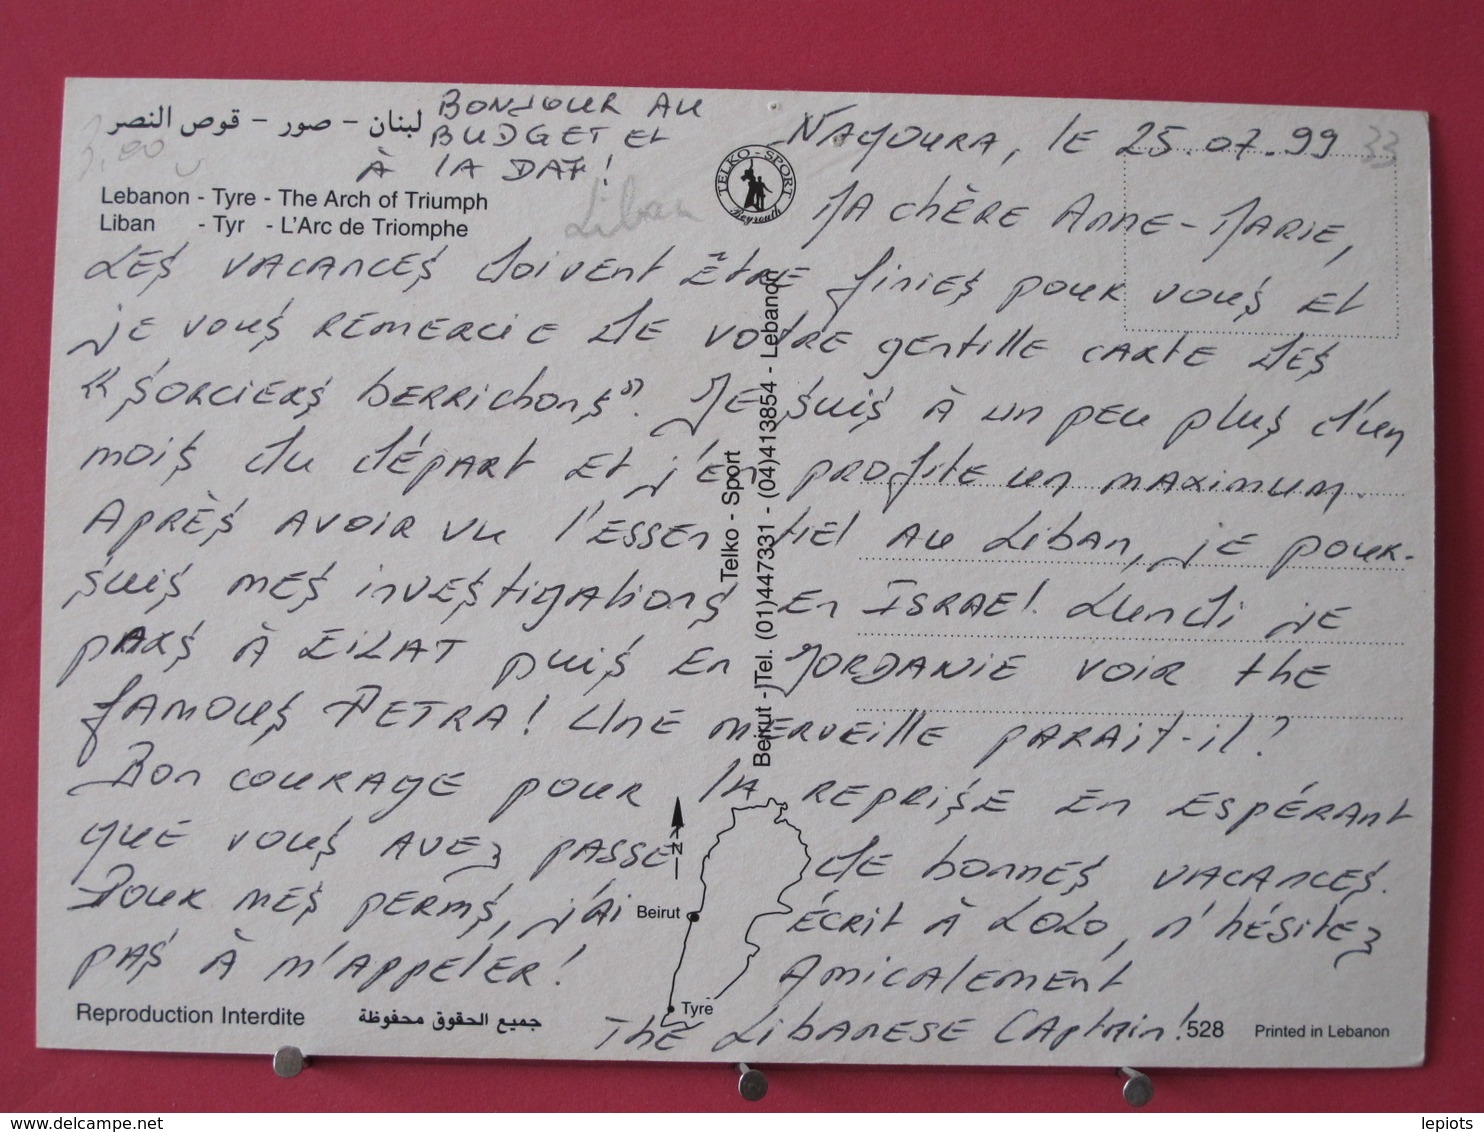 لبنان - صور - قوص النصر
BONJOUR AU
BUDGET ET
À LA DAF!
Lebanon - Tyre - The Arch of Triumph
Liban - Tyr - L'Arc de Triomphe
3,00
Liban
33
TELKO - SPORT
Beyrouth
NAQOURA, LE 25.07.99
MA CHÈRE ANNE-MARIE,
LES VACANCES doivent ÊTRE finies pour vous et
je vous remercie de votre gentille carte des
"sorciers berrichons". Je suis à un peu plus d'un
mois du départ et j'en profite un maximum.
Après avoir vu l'essentiel au Liban, je pour-
suis mes investigations en Israël. Lundi je
pars à EILAT puis en JORDANIE voir the
famous PETRA! Une merveille parait-il?
Bon courage pour la reprise en espérant
que vous avez passé de bonnes vacances.
Pour mes perms, j'ai écrit à LOLO, n'hésitez
pas à m'appeler! Amicalement
The Libanese Captain!
Telko - Sport
Beirut - Tel. (01)447331 - (04)413854 - Lebanon
N
Beirut
Tyre
Reproduction Interdite
جميع الحقوق محفوظة
528
Printed in Lebanon
delcampe.net
lepiots